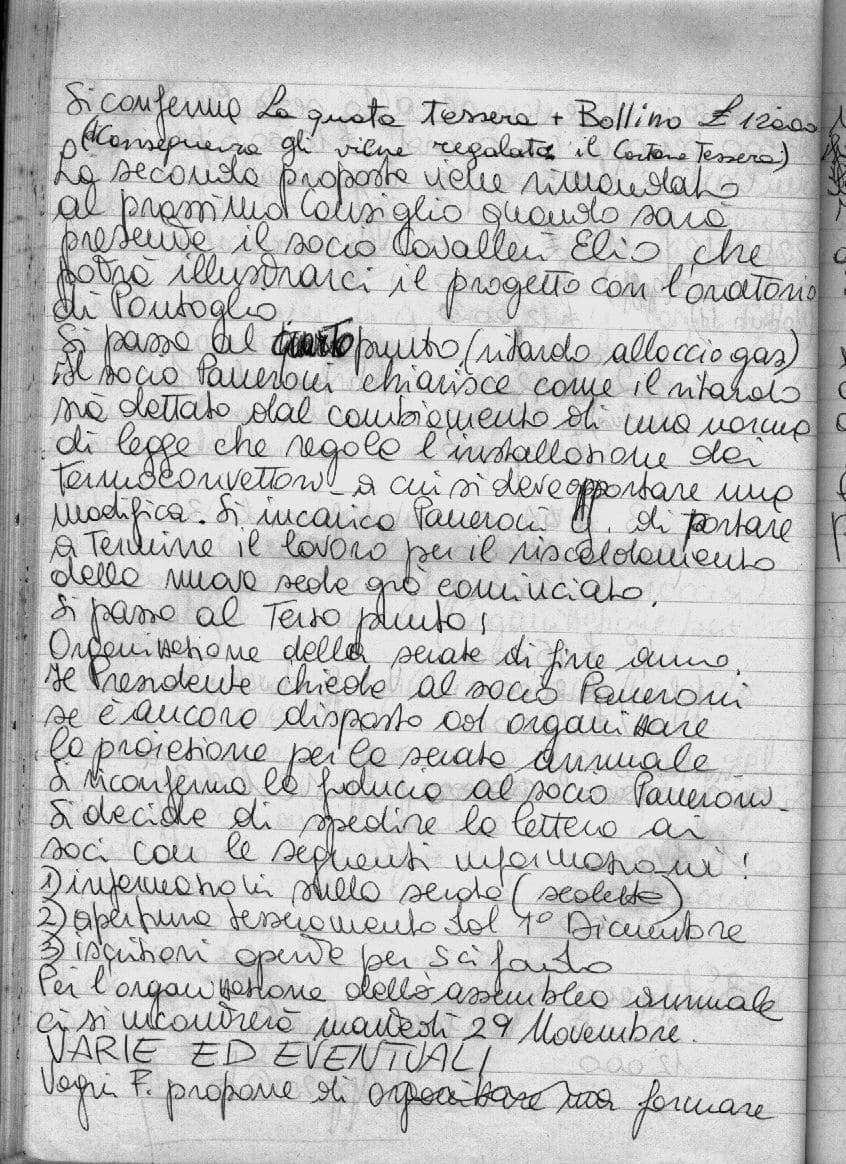 Si conferma La quota Tessera + Bollino £ 12000
(Conseguenza gli viene regalata il Cartone Tessera)
La seconda proposta viene rimandata
al prossimo Consiglio quando sarà
presente il socio Cavalleri Elio, che
potrà illustrarci il progetto con l'oratorio
di Pontoglio
Si passa al punto (ritardo alloccio gas)
il socio Paneroni chiarisce come il ritardo
sia dettato dal cambiamento di una norma
di legge che regola l'installazione dei
Termoconvettori a cui si deve apportare una
modifica. Si incarica Paneroni G. di portare
a Termine il lavoro per il riscaldamento
della nuova sede già cominciato.
Si passa al Terso punto,
Organizzazione della serate di fine anno.
Il Presidente chiede al socio Paneroni
se è ancora disposto ad organizzare
la proiezione per la serata annuale
Si riconferma la fiducia al socio Paneroni.
Si decide di spedire la lettera ai
soci con le seguenti informazioni!
1) informazioni sulla serata (
2) apertura tesseramento dal 1° Dicembre
3) iscrizioni aperte per sci fondo
Per l'organizzazione della assemblea annuale
ci si incontrerà martedì 29 Novembre.
VARIE ED EVENTUALI
F. propone di formare